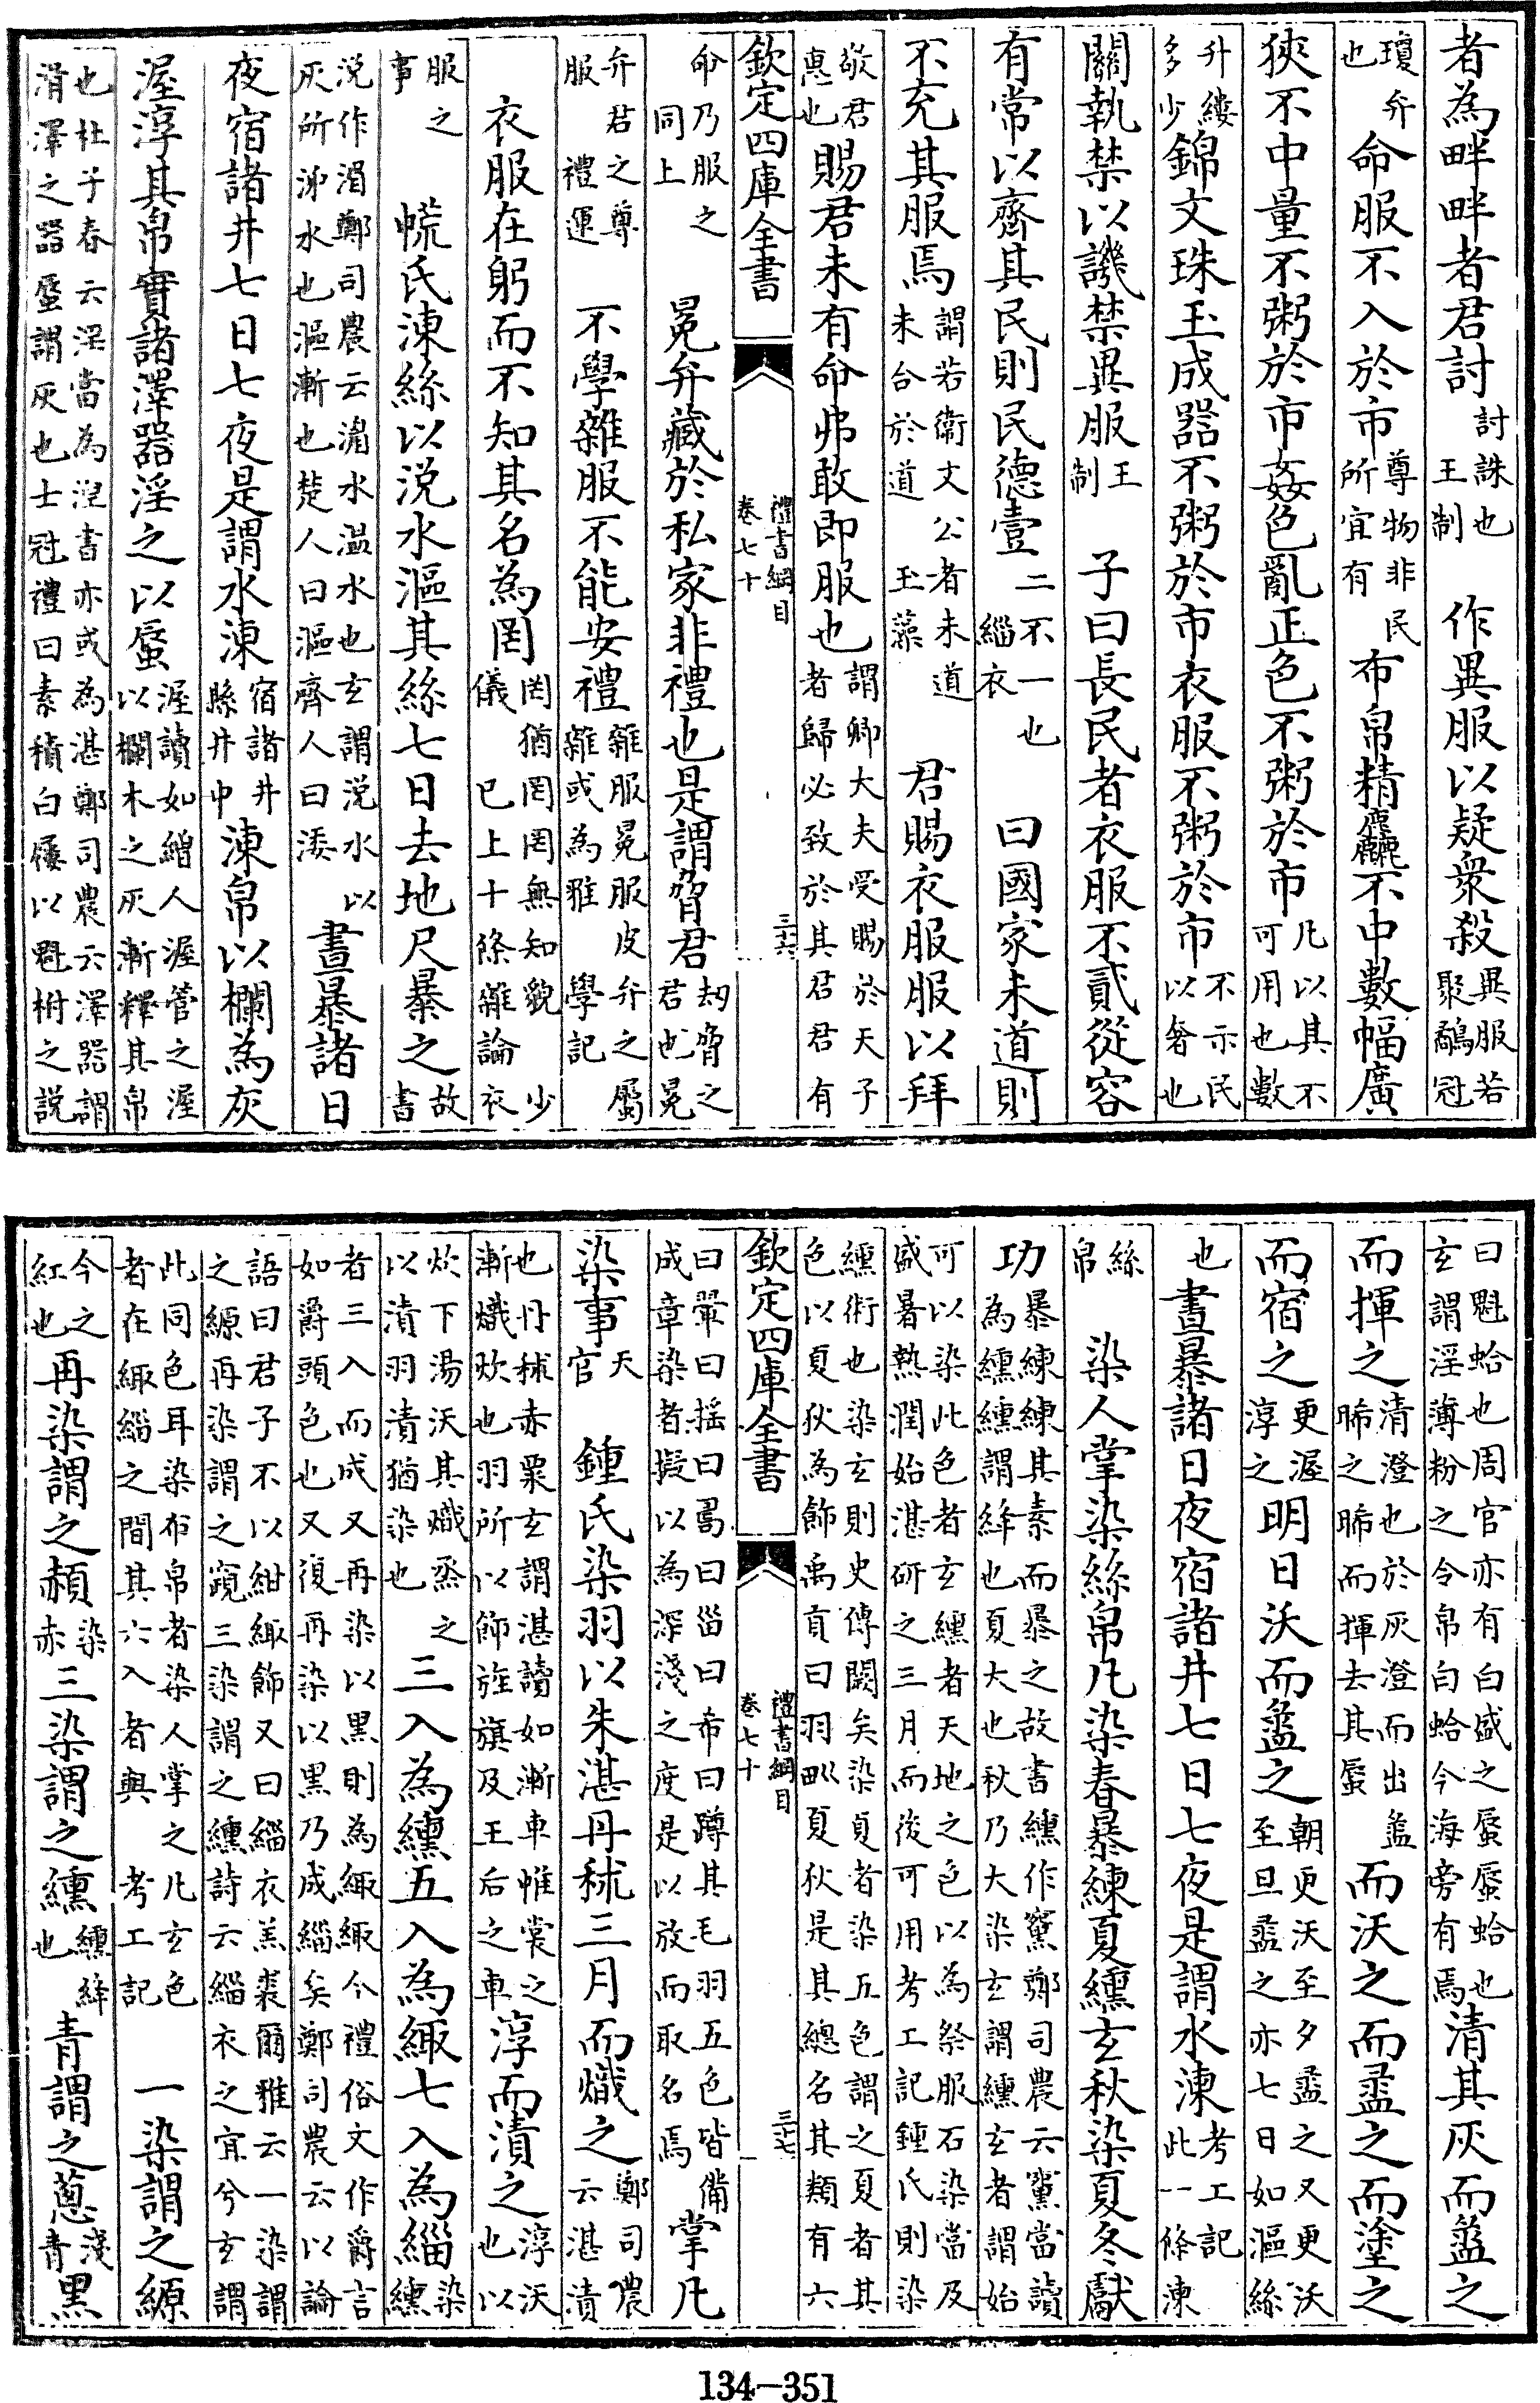 者為畔畔者君討討誅也王制　作異服以疑衆殺異服若聚鷸冠
瓊弁也命服不入於市尊物非民所宜有布帛精麤不中數幅廣
狹不中量不粥於市姦色亂正色不粥於市凡以其不可用也數
升縷多少錦文珠玉成器不粥於市衣服不粥於市不示民以奢也
關執禁以譏禁異服王制　子曰長民者衣服不貳從容
有常以齊其民則民德壹二不一也緇衣　曰國家未道則
不充其服焉謂若衛文公者未道未合於道　玉藻　君賜衣服服以拜
敬君惠也賜君未有命弗敢即服也謂卿大夫受賜於天子者歸必致於其君君有
欽定四庫全書　禮書綱目　卷七十　三十六
命乃服之同上　冕弁藏於私家非禮也是謂脅君刼脅之君也冕
弁君之尊服　禮運　不學雜服不能安禮雜服冕服皮弁之屬雜或為雅　學記
衣服在躬而不知其名為罔罔猶罔罔無知貌　少儀　已上十條雜論衣
服之事　㡆氏湅絲以涗水漚其絲七日去地尺暴之故書
涗作湄鄭司農云湄水温水也玄謂涗水以灰所泲水也漚漸也楚人曰漚齊人曰涹晝暴諸日
夜宿諸井七日七夜是謂水湅宿諸井縣井中湅帛以欄為灰
渥淳其帛實諸澤器淫之以蜃渥讀如繒人渥菅之渥以欄木之灰漸釋其帛
也杜子春云淫當為涅書亦或為湛鄭司農云澤器謂滑澤之器蜃謂灰也士冠禮曰素積白屨以魁柎之説
曰魁蛤也周官亦有白盛之蜃蜃蛤也玄謂淫薄粉之令帛白蛤今海旁有焉清其灰而盝之
而揮之清澄也於灰澄而出盝晞之晞而揮去其蜃而沃之而盝之而塗之
而宿之更渥淳之明日沃而盝之朝更沃至夕盝之又更沃至旦盝之亦七日如漚絲
也晝暴諸日夜宿諸井七日七夜是謂水湅考工記此一條湅
絲帛　染人掌染絲帛凡染春暴練夏纁玄秋染夏冬獻
功暴練練其素而暴之故書纁作䵫鄭司農云䵫當讀為纁纁謂絳也夏大也秋乃大染玄謂纁玄者謂始
可以染此色者玄纁者天地之色以為祭服石染當及盛暑熱潤始湛研之三月而後可用考工記鍾氏則染
纁術也染玄則史傳闕矣染夏者染五色謂之夏者其色以夏狄為飾禹貢曰羽畎夏狄是其總名其類有六
欽定四庫全書　禮書綱目　卷七十　三十七
曰翬曰搖曰𢏚曰甾曰希曰蹲其毛羽五色皆備成章染者擬以為深淺之度是以放而取名焉掌凡
染事天官　鍾氏染羽以朱湛丹秫三月而熾之鄭司農云湛漬
也丹秫赤粟玄謂湛讀如漸車帷裳之漸熾炊也羽所以飾旌旗及王后之車淳而漬之淳沃也以
炊下湯沃其熾烝之以漬羽漬猶染也三入為纁五入為緅七入為緇染纁
者三入而成又再染以黑則為緅緅今禮俗文作爵言如爵頭色也又復再染以黑乃成緇矣鄭司農云以論
語曰君子不以紺緅飾又曰緇衣羔裘爾雅云一染謂之縓再染謂之窺三染謂之纁詩云緇衣之宜兮玄謂
此同色耳染布帛者染人掌之凡玄色者在緅緇之間其六入者與　考工記　一染謂之縓
今之紅也再染謂之赬染赤三染謂之纁纁絳也青謂之蔥淺青黑
134-351